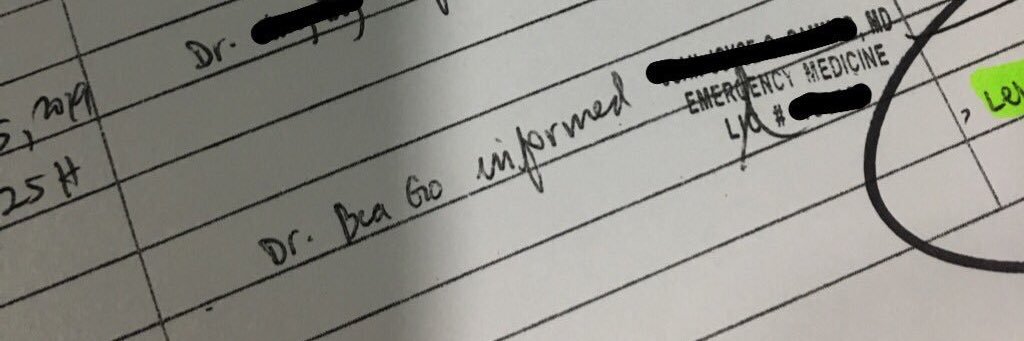 Dr.
5, 2019
25 H
Dr. Bea Go informed
, MD
EMERGENCY MEDICINE
LIC #
, Lev